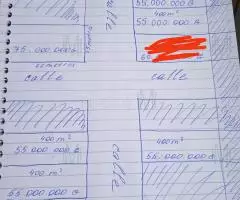 55.000.000 G
400 m²
55.000.000 G
calle
75.000.000 G
esquina
calle
calle
400 m²
55 000 000 G
400 m²
55 000 000 G
calle
400 m²
55.000.000 G